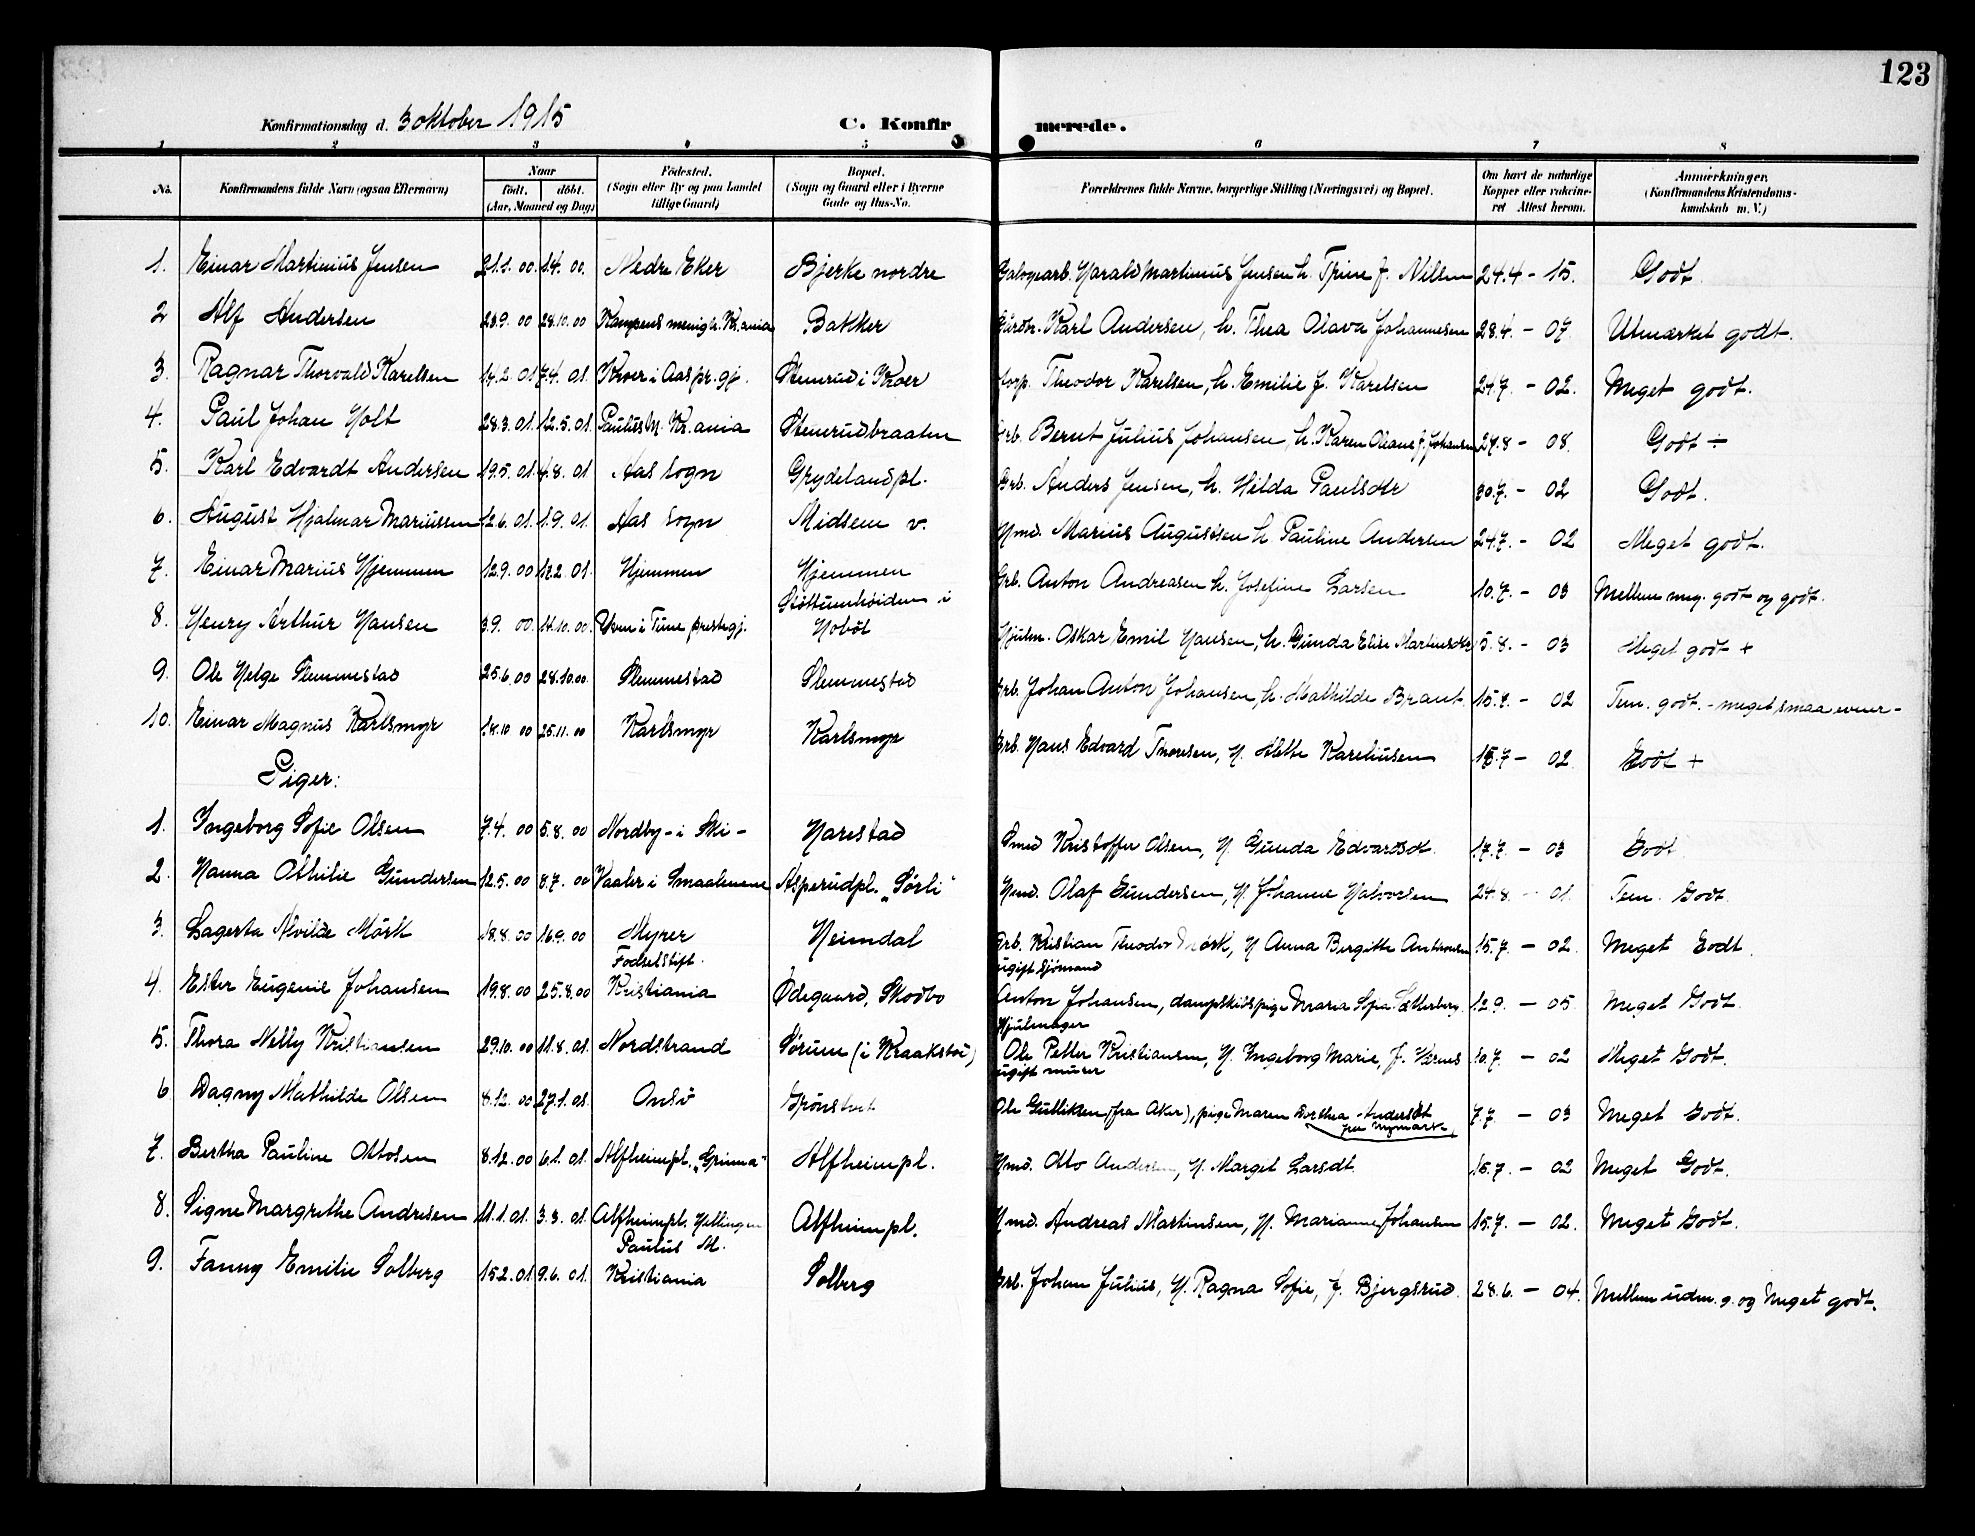 123
Konfirmationsdag d. 3 oktober 1915 C. Konfirmerede.
1 2 3 4 5 6 7 8
No. Konfirmandens fulde Navn (ogsaa Efternavn) Naar født. døbt. (Aar, Maaned og Dag) Fødested. (Sogn eller By og paa Landet tillige Gaard) Bopæl. (Sogn og Gaard eller i Byerne Gade og Hus-No. Forældrenes fulde Navne, borgerlige Stilling (Næringsvei) og Bopæl. Om havt de naturlige Kopper eller vaccineret Attest herom. Anmærkninger. (Konfirmandens Kristendomskundskab m. V.)
1. Einar Martinius Jensen 21.1.00. 1.4.00. Nedre Eker Bjerke nordre Harald Martinius Jensen h. Trine f. Nilsen 24.4 - 15. Godt.
2 Alf Andersen 00 28.10.00 Kampens menigh. Kr.ania Bakker Karl Andersen, h. Thea Olava Johannesen 28.4 - 07. Utmærket godt.
3. Ragnar Thorvald Karelsen 14.2.01 7.4.01. Kroer i Aas pr.gj. Stenrud i Kroer Theodor Karelsen, h. Emilie f. Karelsen 02. Meget godt.
4. Paul Johan Holt 28.3.01. 12.5.01. Paulus M. Kr.ania Stenrudbraaten Arb. Bernt Julius Johansen, h. Karen Oleane f. Johansen 27.8 - 08. Godt ÷
5. Karl Edvardt Andersen 19.5.01. 4.8.01. Aas sogn Grydelandpl. Arb. Anders Jensen, h. Hilda Paulsdtr 30.7. - 02 Godt.
6. August Hjalmar Mariussen 12.6.01. 1.9.01. Aas sogn Midsem v. Hmd. Marius Augustsen h. Pauline Andersen 24.7. - 02 Meget godt.
7. Einar Marius Hjemmen 12.9.00 01. Hjemmen Hjemmen Arb. Anton Andreasen h. Josefine Larsen 10.7. - 03 Mellem meg. godt og godt.
8. Henry Arthur Hansen 3.9.00. 14.10.00. i Tune prestegj. i Hobøl Hjulm. Oskar Emil Hansen, h. Gunda Elise Martinsdtr 5.8. - 03 Meget godt +
9. Ole Helge Slemmestad 25.6.00 28.10.00 Slemmestad Slemmestad Arb. Johan Anton Johansen, h. Mathilde Brant 02 Tem. godt. - meget smaa evner -
10. Einar Magnus Karlsmyr 18.10 00 25.11.00 Karlsmyr Karlsmyr Arb. Hans Edvard Thoresen, H. Kareliusen 15.7 - 02. Godt +
Piger:
1. Ingeborg Sofie Olsen 7.4.00 5.8.00 Nordby - i Ski - Harestad Smed Kristoffer Olsen, H. Gunda Edvardsdt. 17.7. - 03 Godt
2. Hanna Othilie Gundersen 12.5.00 8.7.00 Vaaler i Smaalenene Asperudpl. "Sørli" Hmd. Olaf Gundersen, H. Johanne Halvorsen 24.8. - 01. Tem. Godt.
3. Lagerta Alvilde Mørk 18.8.00 16.9.00 Myrer Heimdal Arb. Kristian Theodor Mørk, H. Anna Birgitte Anthonsen 15.7. - 02. Meget Godt
4. Ester Eugenie Johansen 19.8.00 25.8.00 Fødselstift. Kristiania Ødegaard, Skodbo ugift sjømand Anton Johansen, dampskibspige Maria Sofia 12.9 - 05 Meget Godt
5. Thora Nelly Kristiansen 29.10.00 11.8.01. Nordstrand Sørum (i Kraakstad) Hjulmager Ole Petter Kristiansen, H. Ingeborg Marie, f. 10.7. - 02 Meget Godt.
6 Dagny Mathilde Olsen 8.12.00 27.1.01. Onsø ugift murer Ole Gulliksen (fra Aker), pige Maren Dorthea Andersdt paa Nymark 7.7 - 03 Meget Godt.
7. Bertha Pauline Ottosen 8.12.00 6.1.01. Alfheimpl. "Grinna" Alfheimpl. Hmd. Otto Andersen, H. Marget Larsdt. 15.7. - 02 Meget Godt.
8. Signe Margrethe Andresen 11.1.01. 3.3.01. Alfheimpl. Hellingen Alfheimpl. Hmd. Andreas Martinsen, H. Marianne Johansen 15.7. - 02. Meget Godt.
9. Fanny Emilie Solberg 15.2.01 9.6.01. Paulus M. Kristiania Solberg Arb. Johan Julius, H. Ragna Sofie, f. Bjergsrud. 28.6. - 04. Mellem udm. g. og Meget godt.